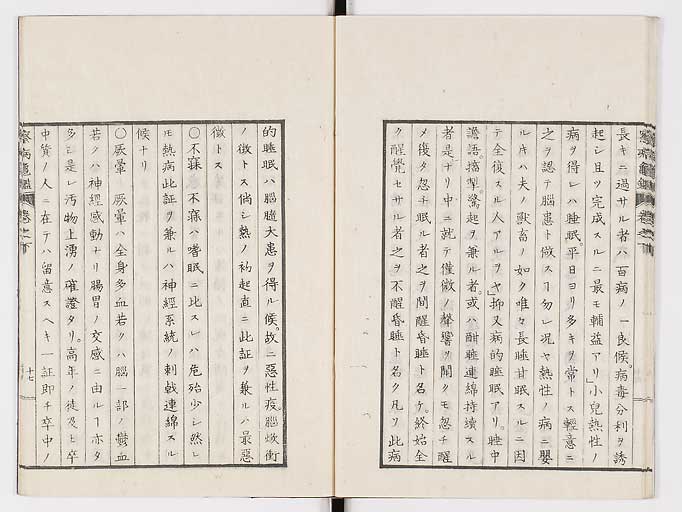 長キニ過サル者ハ百病ノ一良候。病毒分利ヲ誘
起シ且ツ完成スルニ最モ輔益アリ」小兒熱性ノ
病ヲ得レハ睡眠。平日ヨリ多キヲ常トス輕意ニ
之ヲ認テ腦患ト做スコ勿レ况ヤ熱性ノ病ニ嬰
ルキハ夫ノ獸畜ノ如ク唯々長睡甘眠スルニ因
テ全復スル人アルヲヤ」抑又病的睡眠アリ。睡中
譫語。搐掣。驚起ヲ兼ル者。或ハ酣睡連綿持續スル
者是ナリ中ニ就テ僅微ノ聲響ヲ聞クモ忽チ醒
メ復タ忽チ眠ル者之ヲ間醒昏睡ト名ケ。終始全
ク醒覺セサル者之ヲ不醒昏睡ト名ク凡ソ此病
的睡眠ハ腦髓大患ヲ得ル候。故ニ惡性疫。腦焮衝
ノ徴トス倘シ熱ノ初起直ニ此証ヲ兼ルハ最惡
徴トス
〇不寐 不寐ハ嗜眠ニ比スレハ危殆少シ然レ
𪜈熱病此証ヲ兼ルハ神經系統ノ刺戟連綿スル
候ナリ
〇厥暈 厥暈ハ全身多血若クハ腦一部ノ欝血
若クハ神經感動ナリ腸胃ノ交感ニ由ルー亦タ
多シ是レ汚物上湧ノ確證タリ。高年ノ徒及ヒ卒
中質ノ人ニ在テハ留意スヘキ一証即チ卒中ノ
察病龜鑑 卷之下
十七